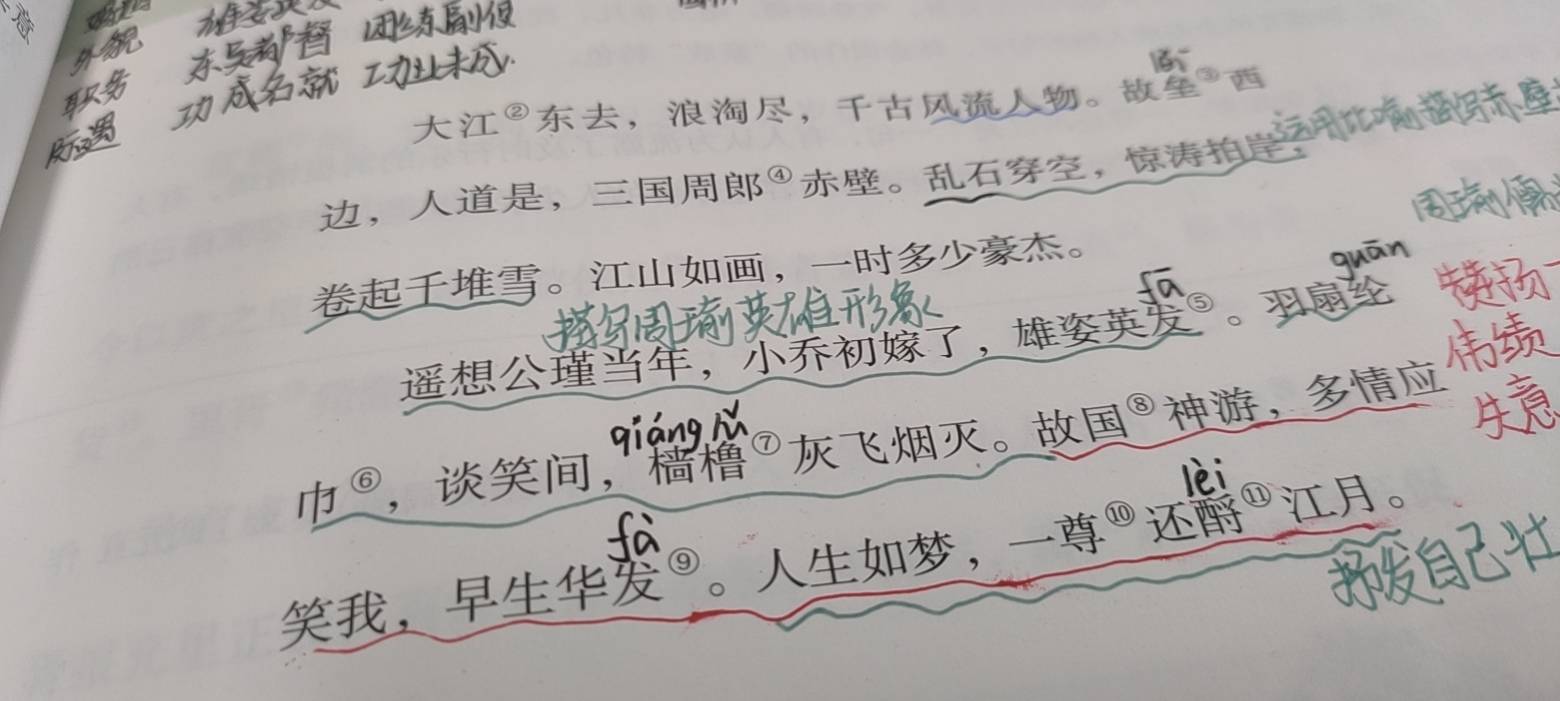 外貌 雄姿英发
职务 东吴都督 团练副使
际遇 功成名就 功业未成.
lěi
大江②东去，浪淘尽，千古风流人物。故垒③西
运用比喻描写赤壁
边，人道是，三国周郎④赤壁。乱石穿空，惊涛拍岸，
周瑜儒
卷起千堆雪。江山如画，一时多少豪杰。
描写周瑜英雄形象
fā
guān
赞扬
遥想公瑾当年，小乔初嫁了，雄姿英发⑤。羽扇纶
伟绩
qiáng lǔ
巾⑥，谈笑间，樯橹⑦灰飞烟灭。故国⑧神游，多情应
失意
fà
lèi
笑我，早生华发⑨。人生如梦，一尊⑩还酹⑪江月。
抒发自己壮